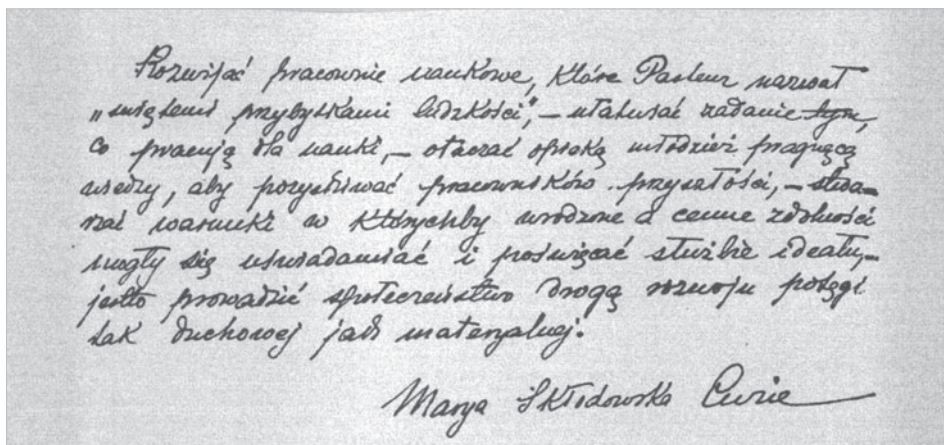 Rozwijać pracownie naukowe, które Pasteur nazwał
„świętemi przybytkami ludzkości", – ułatwiać zadanie tym,
co pracują dla nauki, – otaczać opieką młodzież pragnącą
wiedzy, aby pozyskiwać pracowników przyszłości, – stwa-
rzać warunki w którychby wrodzone a cenne zdolności
mogły się uświadamiać i poświęcać służbie idealu, –
jestto prowadzić społeczeństwo drogą rozwoju potęgi
tak duchowej jak materyalnej.
Marya Skłodowska Curie